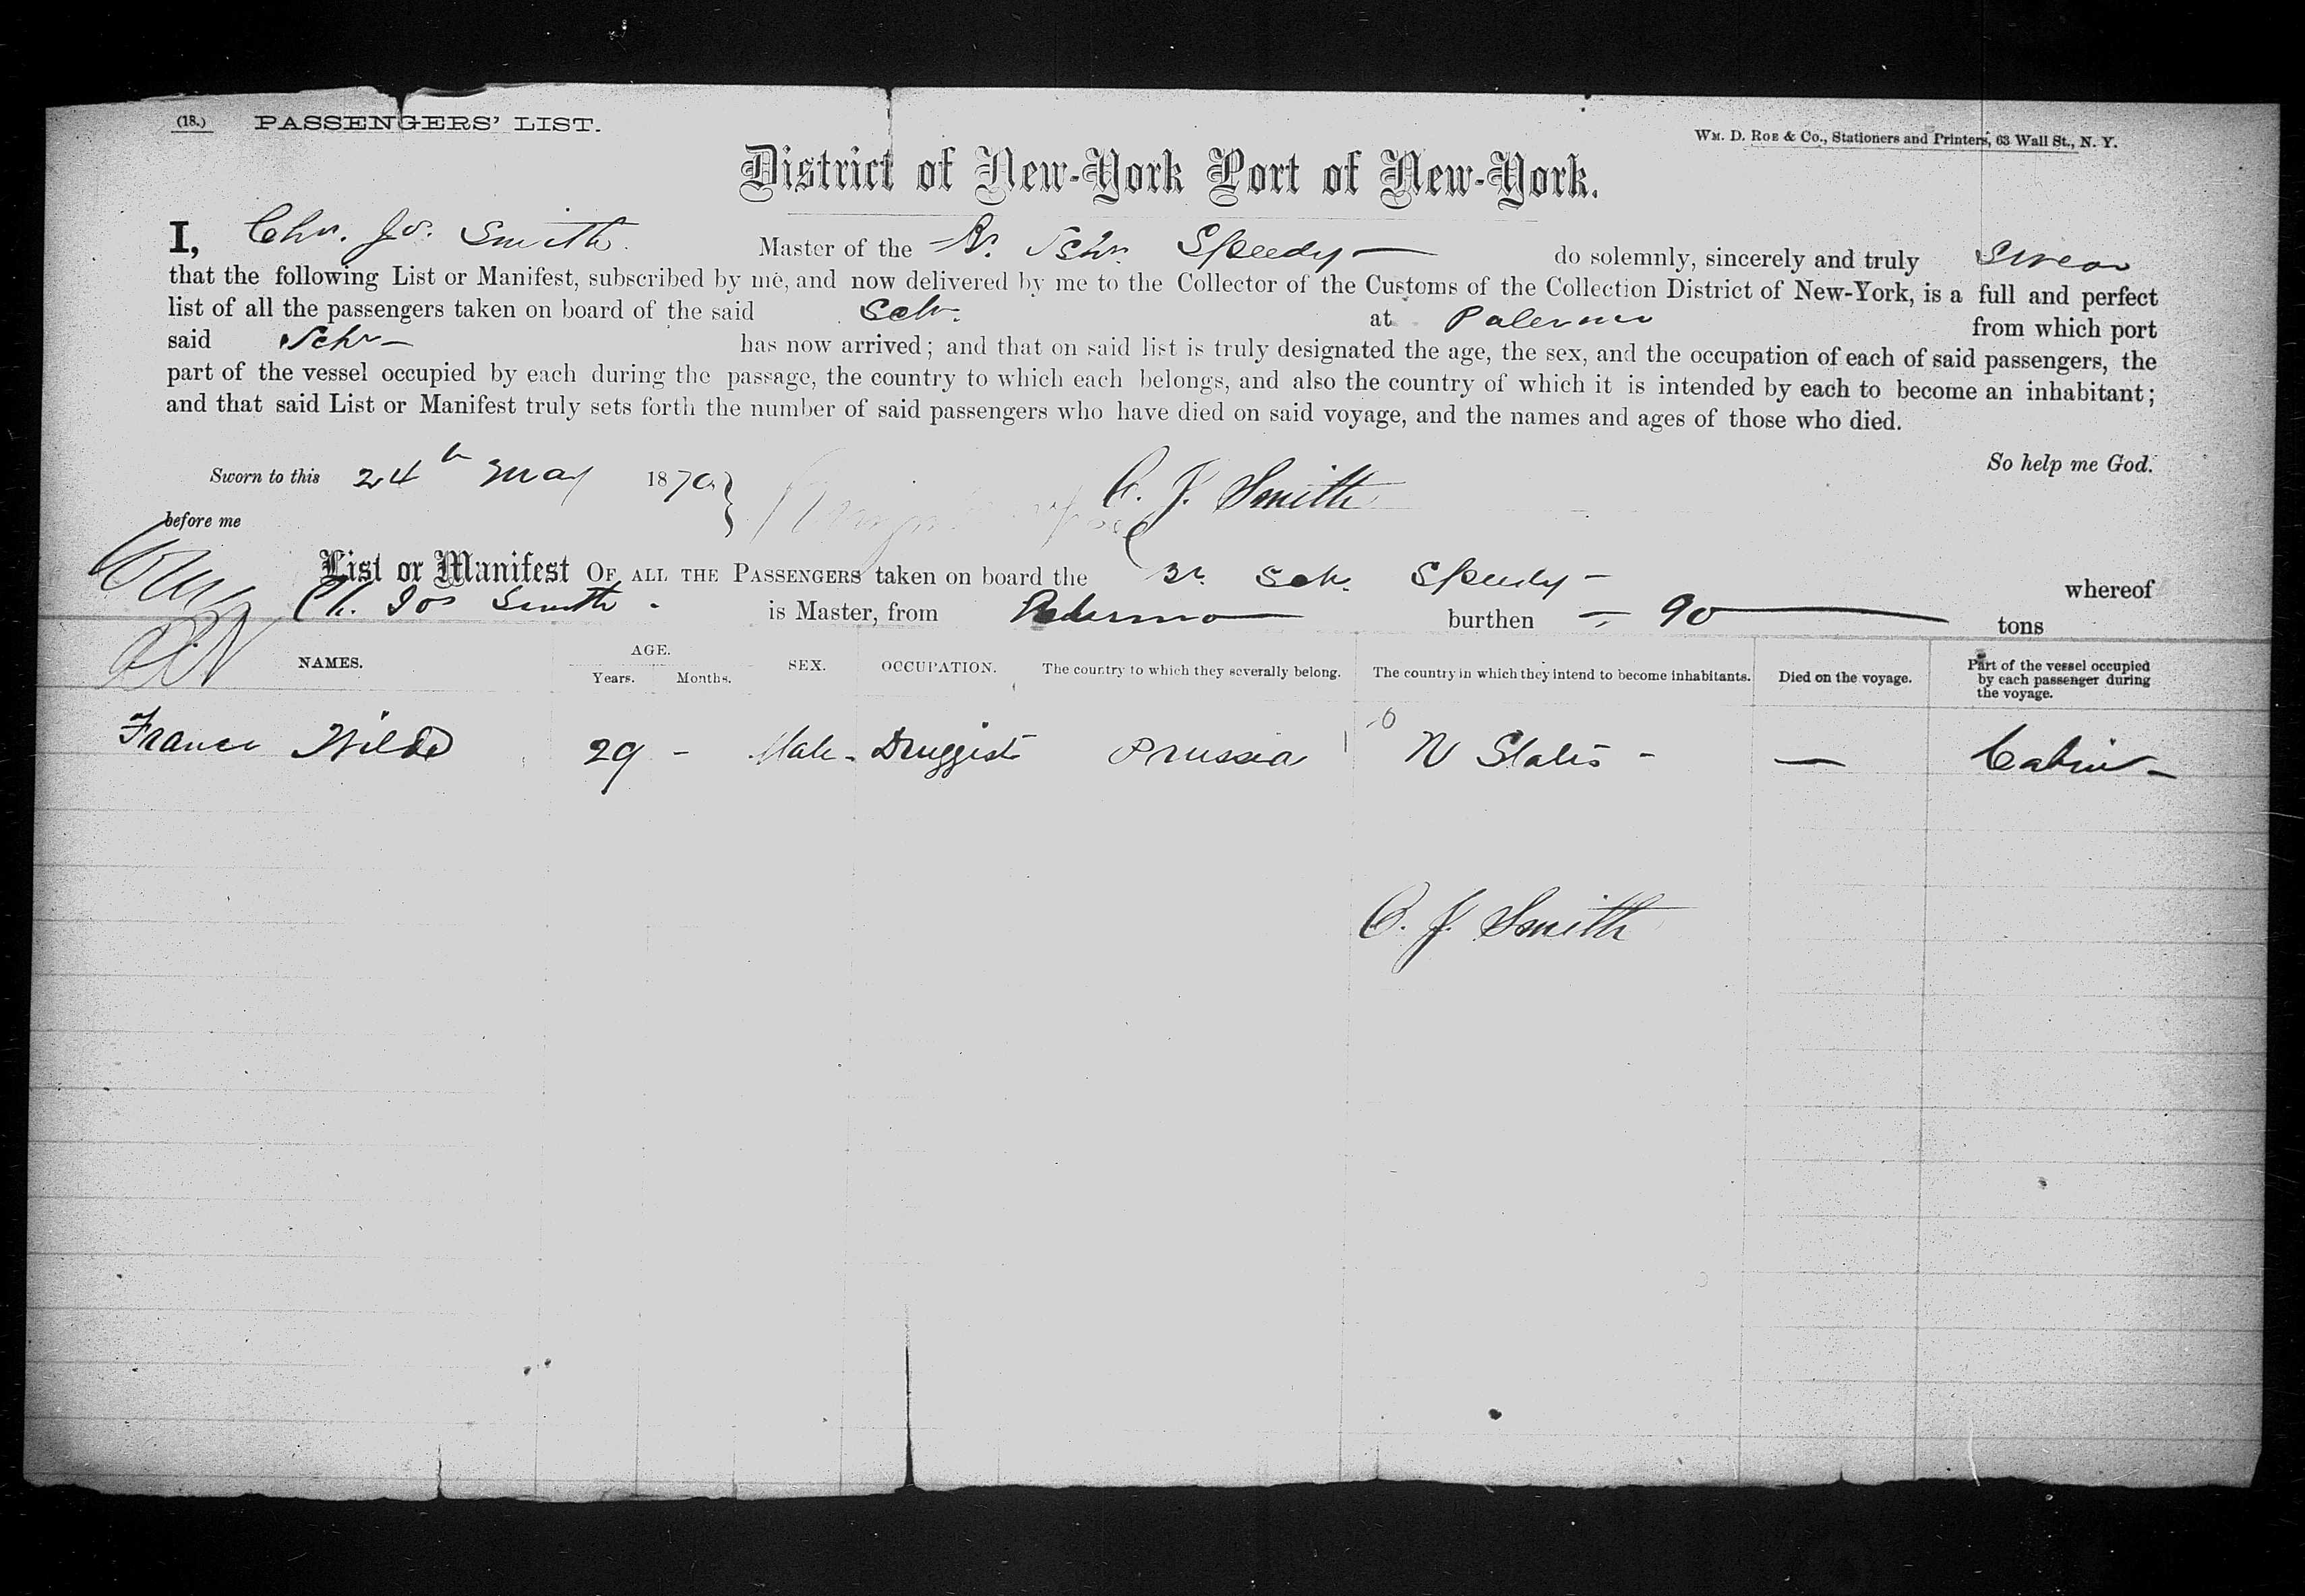 (18.) PASSENGERS' LIST.
Wm. D. Roe & Co., Stationers and Printers, 63 Wall St., N. Y.
District of New-York Port of New-York.
I, Chs. Jos. Smith Master of the Br. Schr. Speedy — do solemnly, sincerely and truly swear
that the following List or Manifest, subscribed by me, and now delivered by me to the Collector of the Customs of the Collection District of New-York, is a full and perfect
list of all the passengers taken on board of the said Schr. at Palermo from which port
said Schr — has now arrived; and that on said list is truly designated the age, the sex, and the occupation of each of said passengers, the
part of the vessel occupied by each during the passage, the country to which each belongs, and also the country of which it is intended by each to become an inhabitant;
and that said List or Manifest truly sets forth the number of said passengers who have died on said voyage, and the names and ages of those who died.
So help me God.
Sworn to this 24th May 1870 } C. J. Smith
before me
List or Manifest OF ALL THE PASSENGERS taken on board the Br. Sch. Speedy — whereof
Ch. Jos Smith is Master, from Palermo — burthen — 90 — tons
NAMES. AGE. Years. Months. SEX. OCCUPATION. The country to which they severally belong. The country in which they intend to become inhabitants. Died on the voyage. Part of the vessel occupied by each passenger during the voyage.
Wilde 29 - Male - Druggist Prussia U States - — Cabin -
C. J. Smith